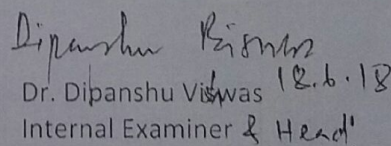 Dipanshu Biswas
Dr. Dipanshu Viswas 18.6.18
Internal Examiner & Head